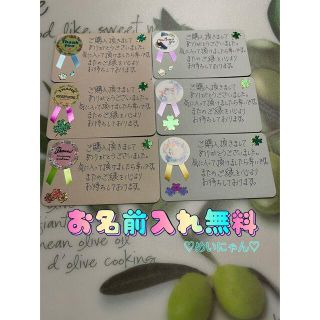 od like sweet
ご購入頂きまして
ありがとうございました。
気に入って頂けましたら幸いです。
またのご縁を心より
お待ちしております。
ご購入頂きまして
ありがとうございました。
気に入って頂けましたら幸いです。
またのご縁を心より
お待ちしております。
ご購入頂きまして
ありがとうございました。
気に入って頂けましたら幸いです。
またのご縁を心より
お待ちしております。
ご購入頂きまして
ありがとうございました。
気に入って頂けましたら幸いです。
またのご縁を心より
お待ちしております。
ご購入頂きまして
ありがとうございました。
気に入って頂けましたら幸いです。
またのご縁を心より
お待ちしております。
ご購入頂きまして
ありがとうございました。
気に入って頂けましたら幸いです。
またのご縁を心より
お待ちしております。
お名前入れ無料
♡めいにゃん♡
nean olive oil
d'olive cooking